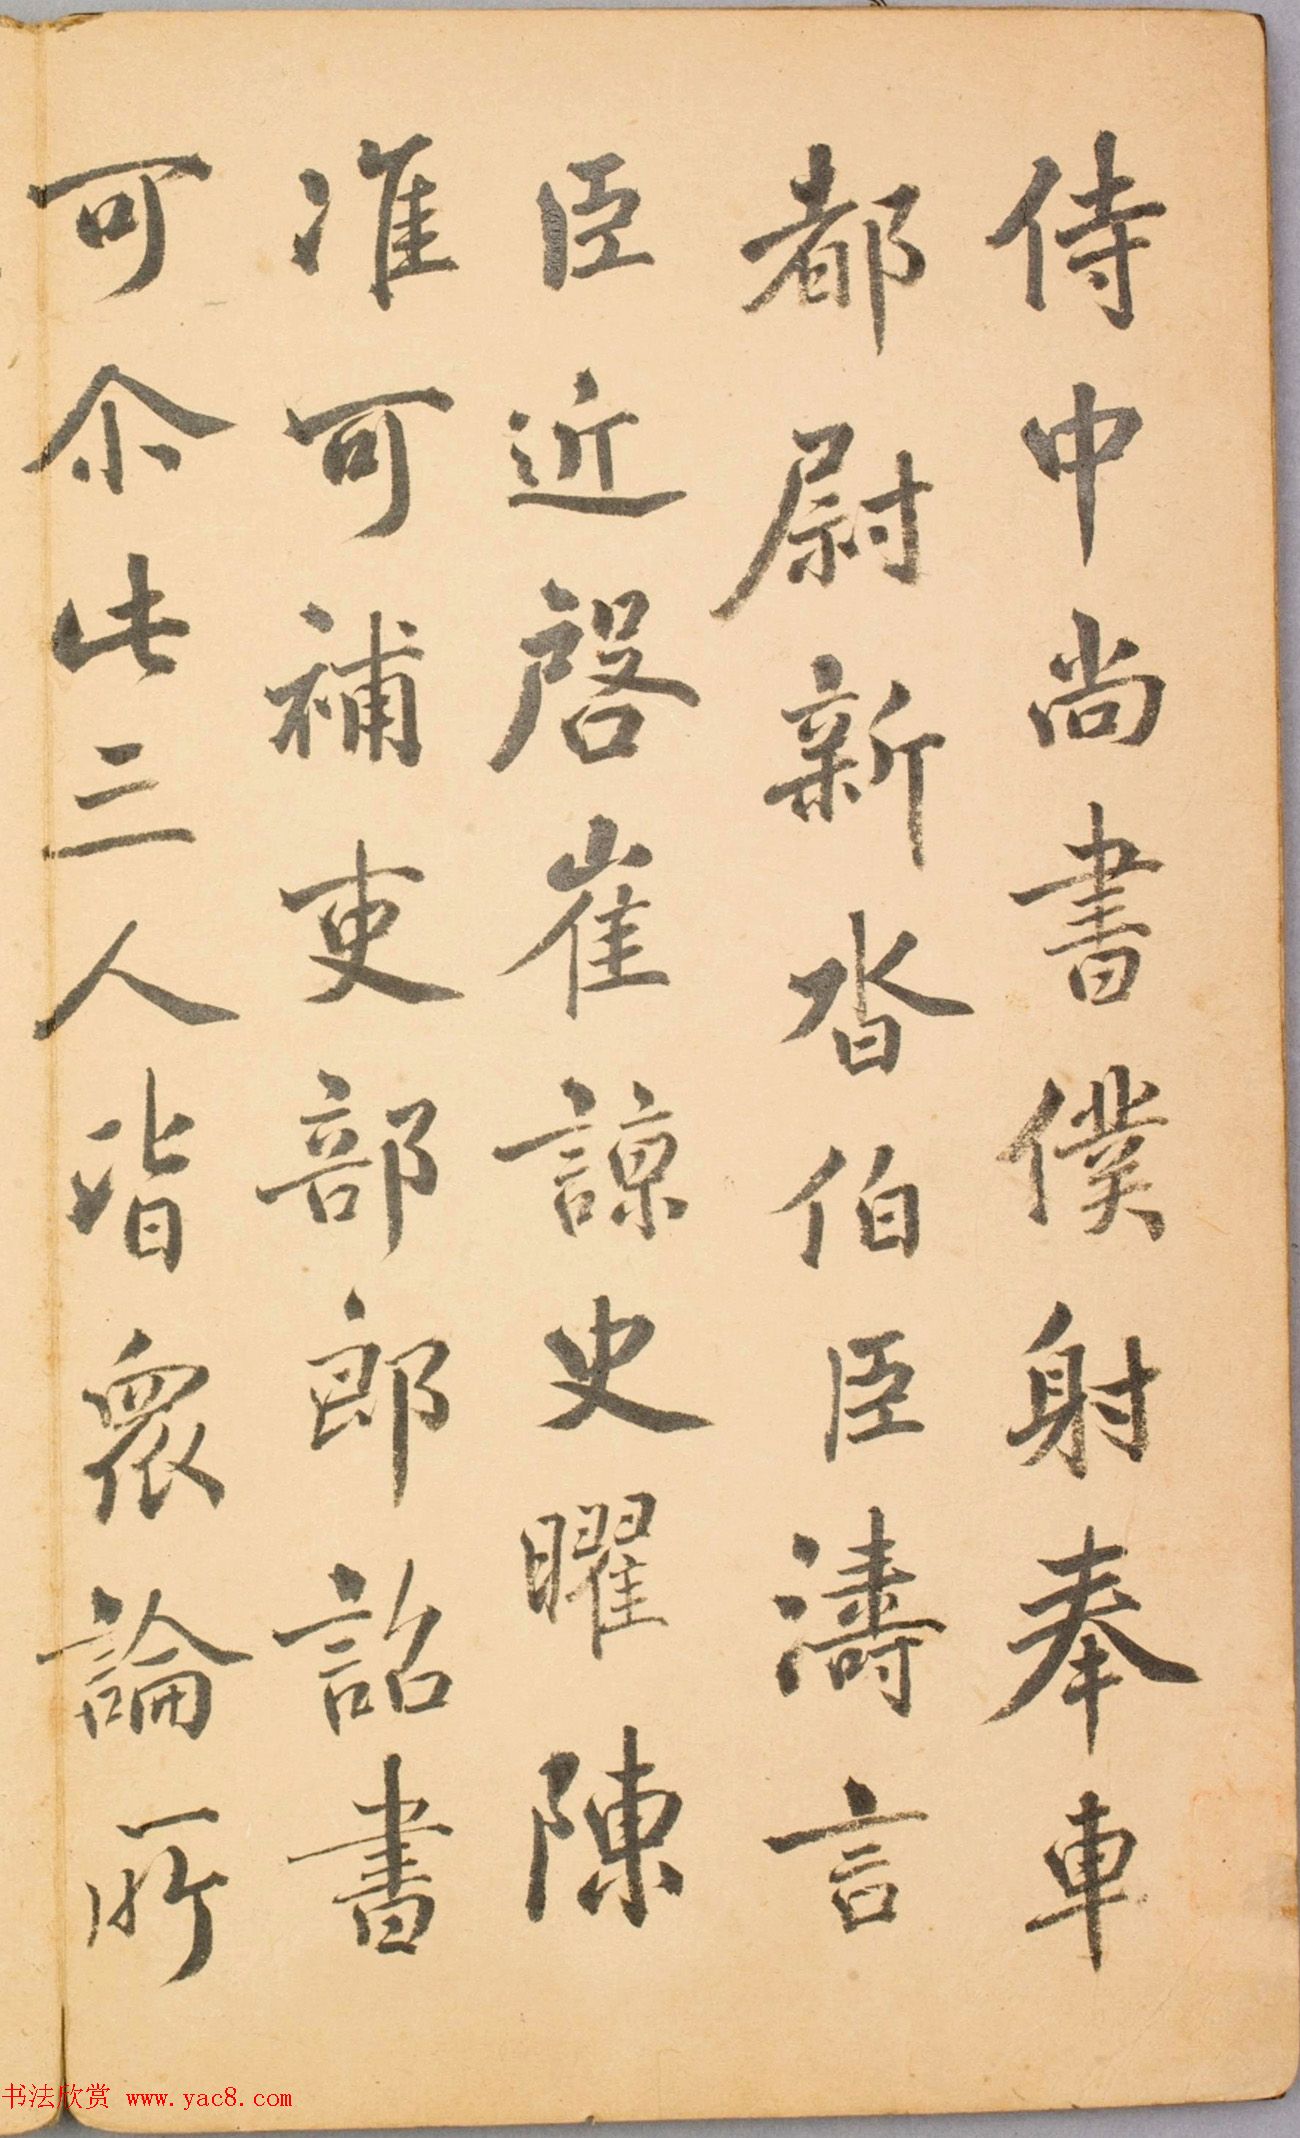 侍中尚書僕射奉車
都尉新沓伯臣濤言
臣近啓崔諒史曜陳
准可補吏部郎詔書
可尒此三人皆眾論所
书法欣赏 www.yac8.com